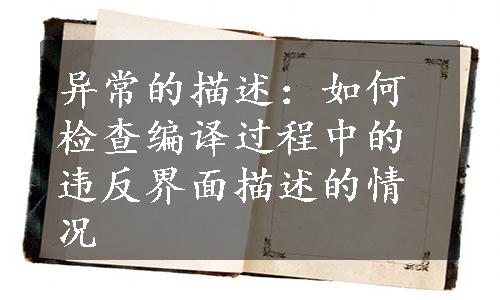 异常的描述：如何
检查编译过程中的
违反界面描述的情
况